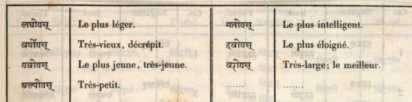 लघीयस् Le plus léger. मतीयस् Le plus intelligent.
वर्षीयस् Très-vieux, décrépit. दवीयस् Le plus éloigné.
यवीयस् Le plus jeune, très-jeune. वरीयस् Très-large; le meilleur.
अल्पीयस् Très-petit. ...... ......